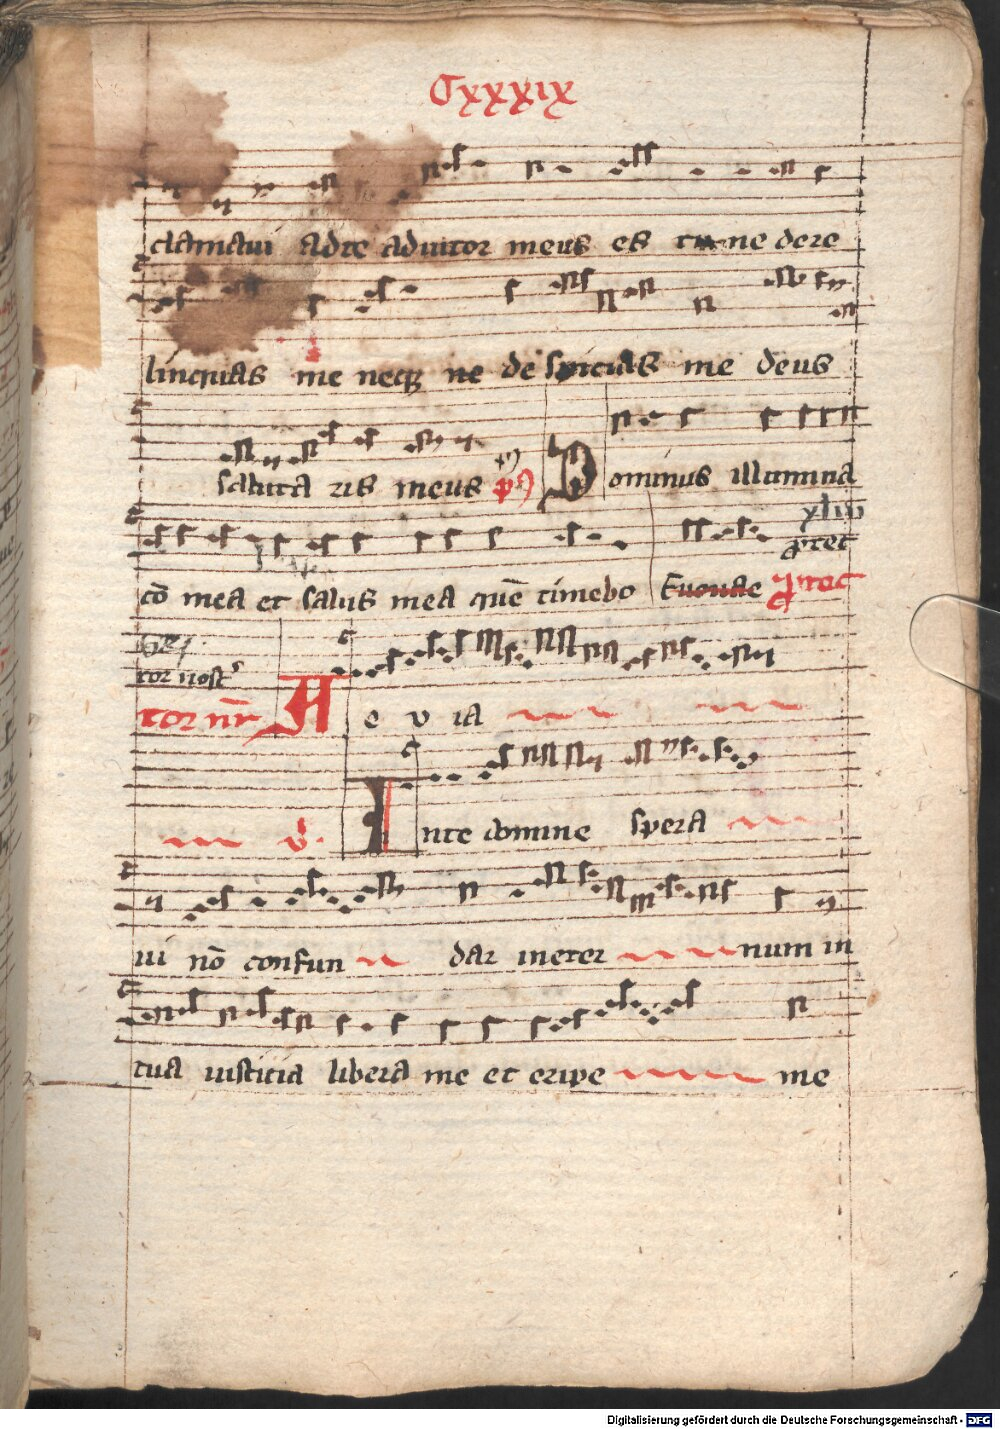 Cxxxix
clamaui ad te adiutor meus es ne dere
linquas me neqz ne de spicias me deus
saluta ris meus ps Dominus illumina
xliiii
ꝓtec
cō mea et salus mea quē timebo Euouae ꝓtec
tor nostˢ
tor nr̄ A e v ia
v̇. Inte domine spera
ui nō confun dar ineter num in
tua iusticia libera me et eripe me
Digitalisierung gefördert durch die Deutsche Forschungsgemeinschaft - DFG